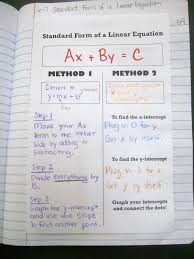 6-7 Standard Form of a Linear Equation
69
Standard Form of a Linear Equation
Ax + By = C
METHOD 1
METHOD 2
Convert to
y=mx+b
Step 1
Move your Ax
term to the other
side by adding or
subtracting.
Step 2
Divide everything by
B.
Step 3
Graph the y-intercept
and use the slope
to find another point.
To find the x-intercept
Plug in 0 for y.
Get x by itself
To find the y-intercept
Plug in 0 for x
Get y by itself
Graph your intercepts
and connect the dots!